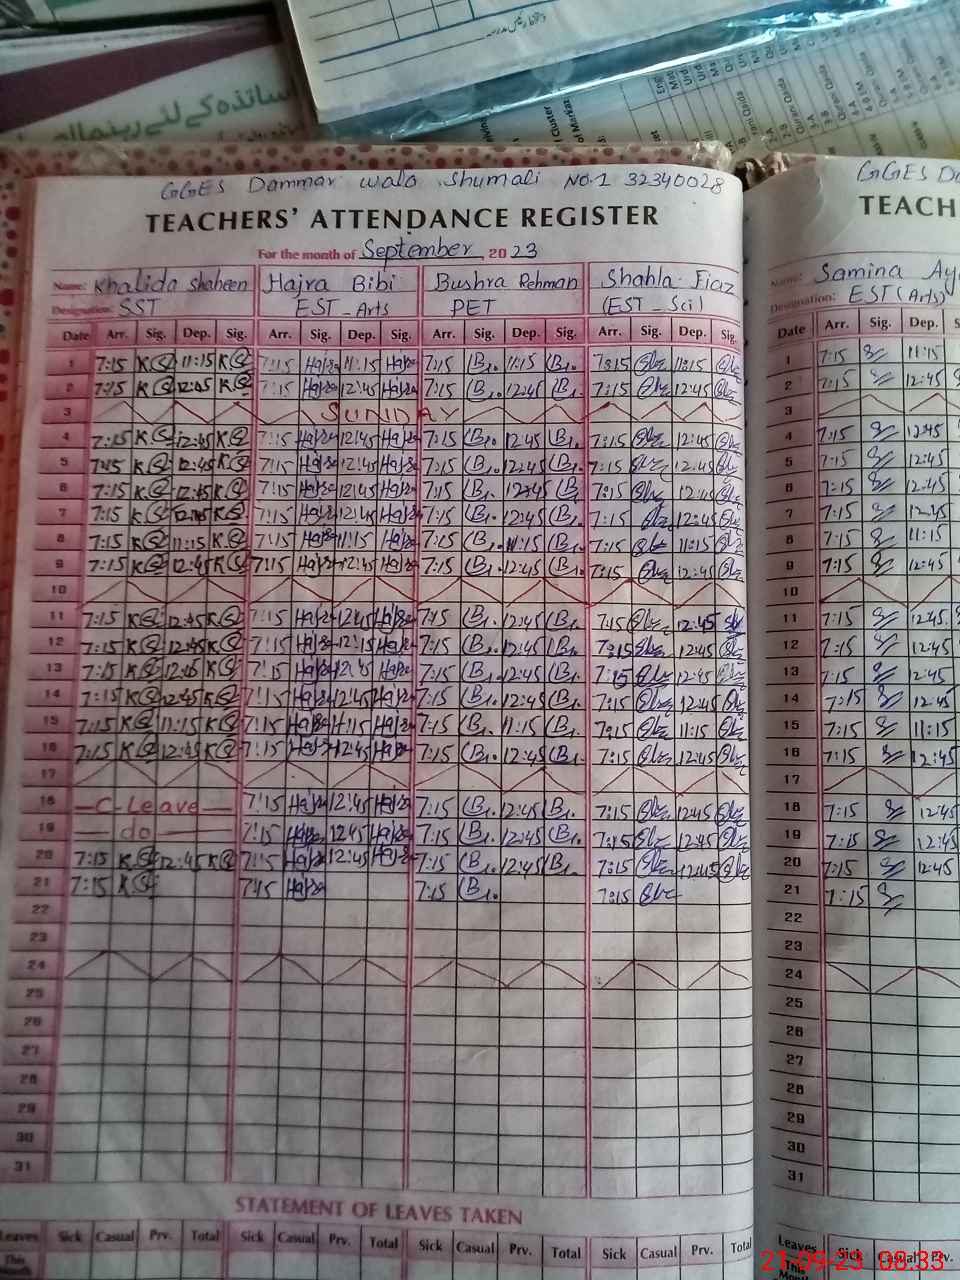 دستخط رئیس مدرسہ
اساتذہ کے لئے رہنما
GGES Dammar wala Shumali NO.1 32340028
TEACHERS' ATTENDANCE REGISTER
For the month of September 2023
Name: Khalida Shaheen Hajra Bibi Bushra Rehman Shahla Fiaz
Designation: SST EST_Arts PET (EST_Sci)
Date Arr. Sig. Dep. Sig. Arr. Sig. Dep. Sig. Arr. Sig. Dep. Sig. Arr. Sig. Dep. Sig.
1 7:15 11:15 7:15 Hajra 11:15 Hajra 7:15 11:15 7:15 11:15
2 7:15 12:45 7:15 Hajra 12:45 Hajra 7:15 12:45 7:15 12:45
3 SUNDAY
4 7:15 12:45 7:15 Hajra 12:45 Hajra 7:15 12:45 7:15 12:45
5 7:15 12:45 7:15 Hajra 12:45 Hajra 7:15 12:45 7:15 12:45
6 7:15 12:45 7:15 Hajra 12:45 Hajra 7:15 12:45 7:15 12:45
7 7:15 12:45 7:15 Hajra 12:45 Hajra 7:15 12:45 7:15 12:45
8 7:15 11:15 7:15 Hajra 11:15 Hajra 7:15 11:15 7:15 11:15
9 7:15 12:45 7:15 Hajra 12:45 Hajra 7:15 12:45 7:15 12:45
10
11 7:15 12:45 7:15 Hajra 12:45 Hajra 7:15 12:45 7:15 12:45
12 7:15 12:45 7:15 Hajra 12:15 Hajra 7:15 12:45 7:15 12:45
13 7:15 12:45 7:15 Hajra 12:45 Hajra 7:15 12:45 7:15 12:45
14 7:15 12:45 7:15 Hajra 12:45 Hajra 7:15 12:45 7:15 12:45
15 7:15 11:15 7:15 Hajra 11:15 Hajra 7:15 11:15 7:15 11:15
16 7:15 12:45 7:15 Hajra 12:45 Hajra 7:15 12:45 7:15 12:45
17
18 C-Leave 7:15 Hajra 12:45 Hajra 7:15 12:45 7:15 12:45
19 do 7:15 Hajra 12:45 Hajra 7:15 12:45 7:15 12:45
20 7:15 12:45 7:15 Hajra 12:45 Hajra 7:15 12:45 7:15 12:45
21 7:15 7:15 Hajra 7:15 7:15
22
23
24
25
26
27
28
29
30
31
STATEMENT OF LEAVES TAKEN
Leaves Sick Casual Prv. Total Sick Casual Prv. Total Sick Casual Prv. Total Sick Casual Prv. Total
This Month
GGES Da
TEACH
Name: Samina Ay
Designation: EST (Arts)
Date Arr. Sig. Dep.
1 7:15 11:15
2 7:15 12:45
3
4 7:15 12:45
5 7:15 12:45
6 7:15 12:45
7 7:15 12:45
8 7:15 11:15
9 7:15 12:45
10
11 7:15 12:45
12 7:15 12:45
13 7:15 12:45
14 7:15 12:45
15 7:15 11:15
16 7:15 12:45
17
18 7:15 12:45
19 7:15 12:45
20 7:15 12:45
21 7:15
22
23
24
25
26
27
28
29
30
31
Leaves Sick Casual Prv.
21-09-23 08:33